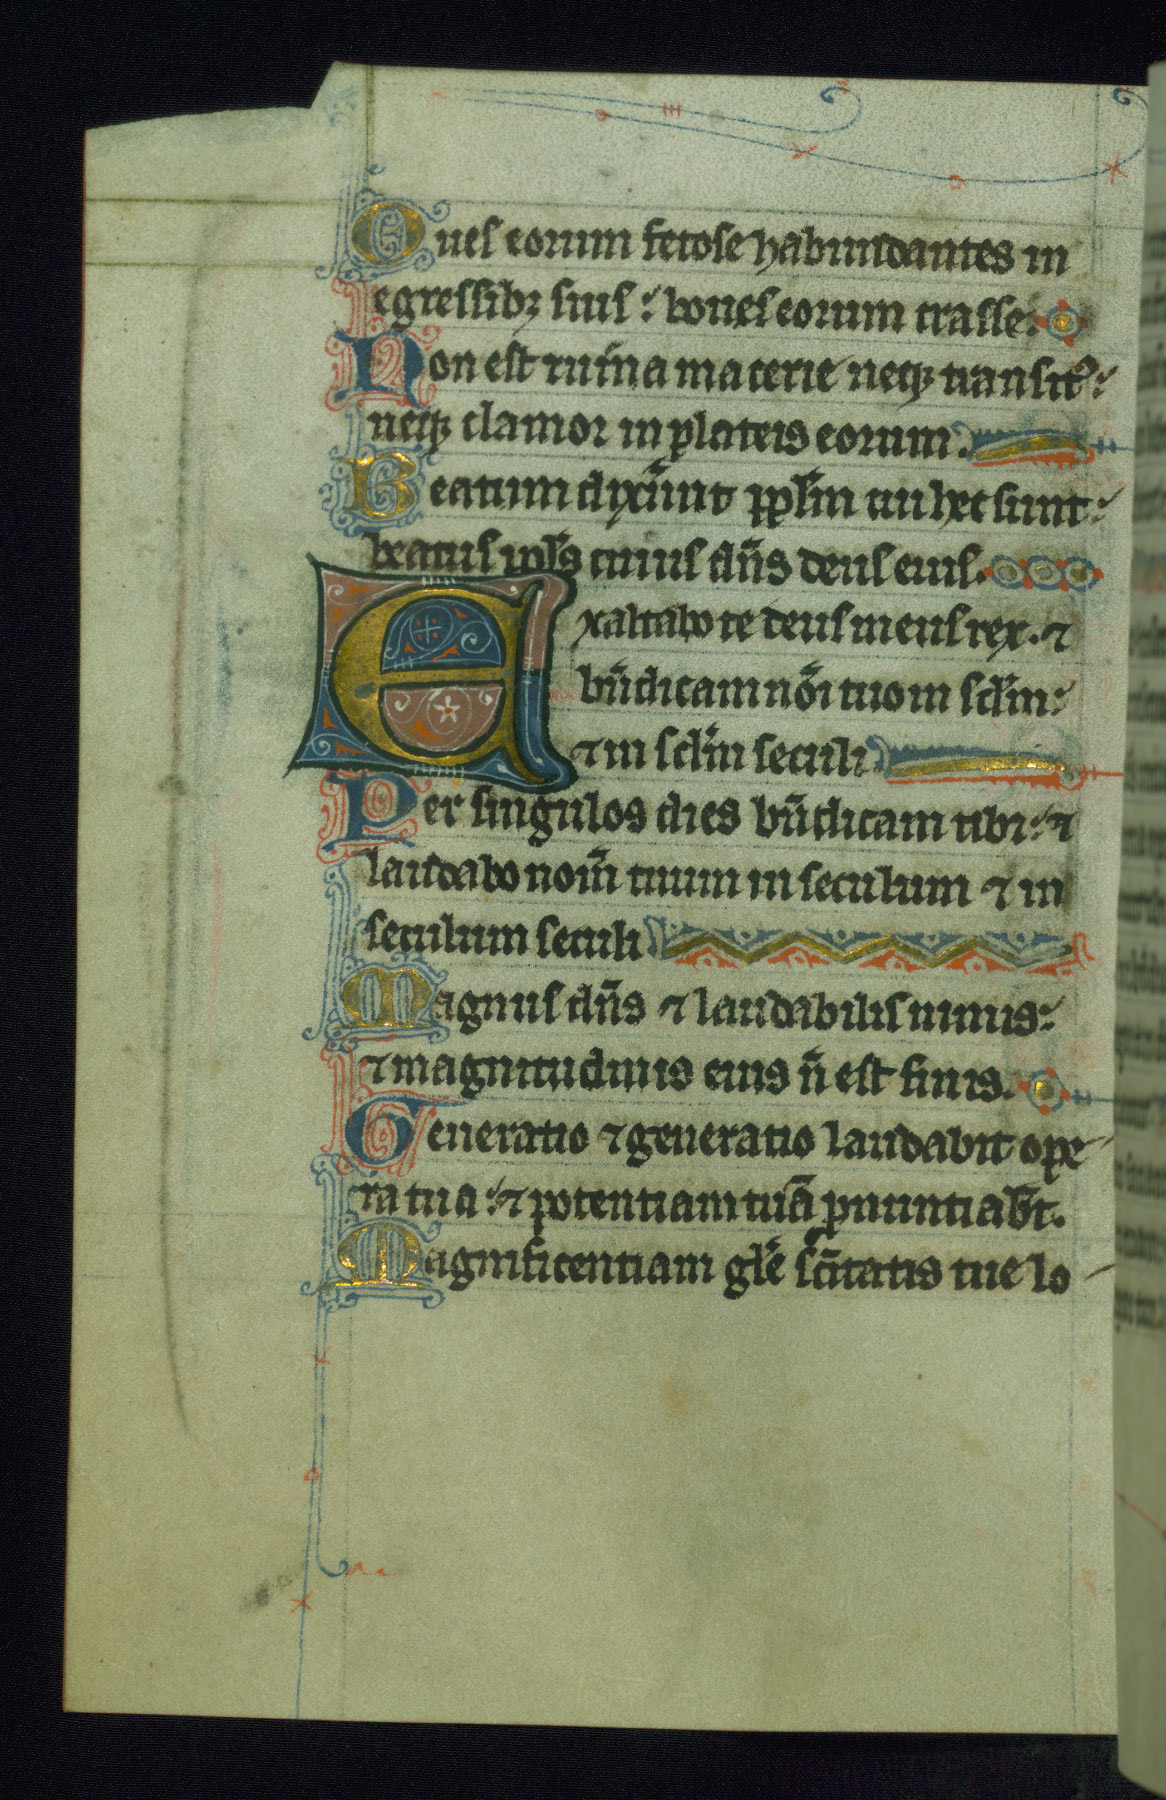 Oues eorum fetose habundantes in
egressibꝫ suis : boues eorum crasse.
Non est ruina macerie neqꝫ transitꝰ :
neqꝫ clamor in plateis eorum.
Beatum dix̄unt ppl̄m cui hec sunt :
beatus ppl̄s cuius dn̄s deus eius.
Exaltabo te deus meus rex. ⁊
bn̄dicam nōi tuo in scl̄m :
⁊ in scl̄m seculi
Per singulos dies bn̄dicam tibi : ⁊
laudabo nom̄ tuum in seculum ⁊ in
seculum seculi
Magnus dn̄s ⁊ laudabilis nimis :
⁊ magnitudinis eius n̄ est finis.
Generatio ⁊ generatio laudabit ope
ra tua : ⁊ potentiam tuā ꝓnuntiab̄t.
Magnificentiam gl̄e sc̄itatis tue lo